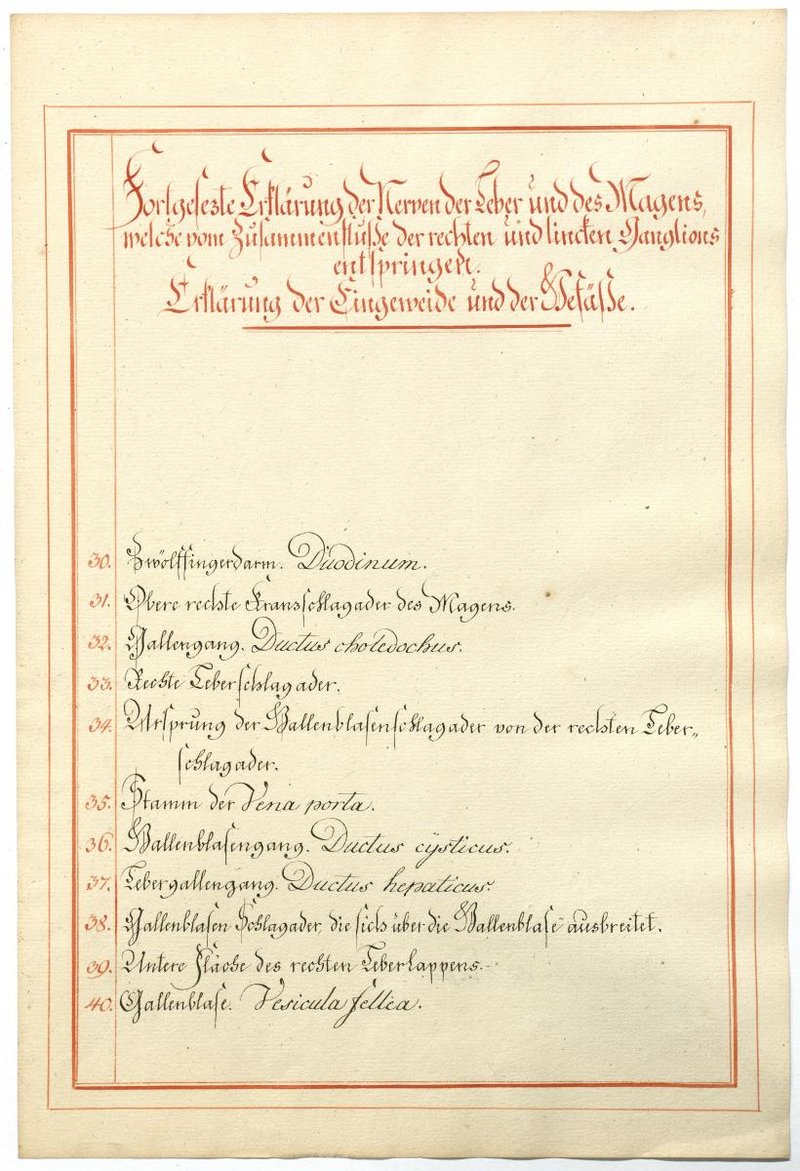 Fortgesezte Erklärung der Nerven der Leber und des Magens,
welche vom Zusammenflusse der rechten und lincken Ganglions
entspringen.
Erklärung der Eingeweide und der Gefässe.
30. Zwölffingerdarm. Duodinum.
31. Obere rechte Kransschlagader des Magens.
32. Gallengang. Ductus choledochus.
33. Rechte Leberschlagader.
34. Ursprung der Gallenblasenschlagader von der rechten Leber„
schlagader.
35. Stamm der Vena porta.
36. Gallenblasengang. Ductus cÿsticus.
37. Lebergallengang. Ductus hepaticus.
38. Gallenblasen Schlagader, die sich über die Gallenblase ausbreitet.
39. Untere Fläche des rechten Leberlappens.
40. Gallenblase. Vesicula fellea.